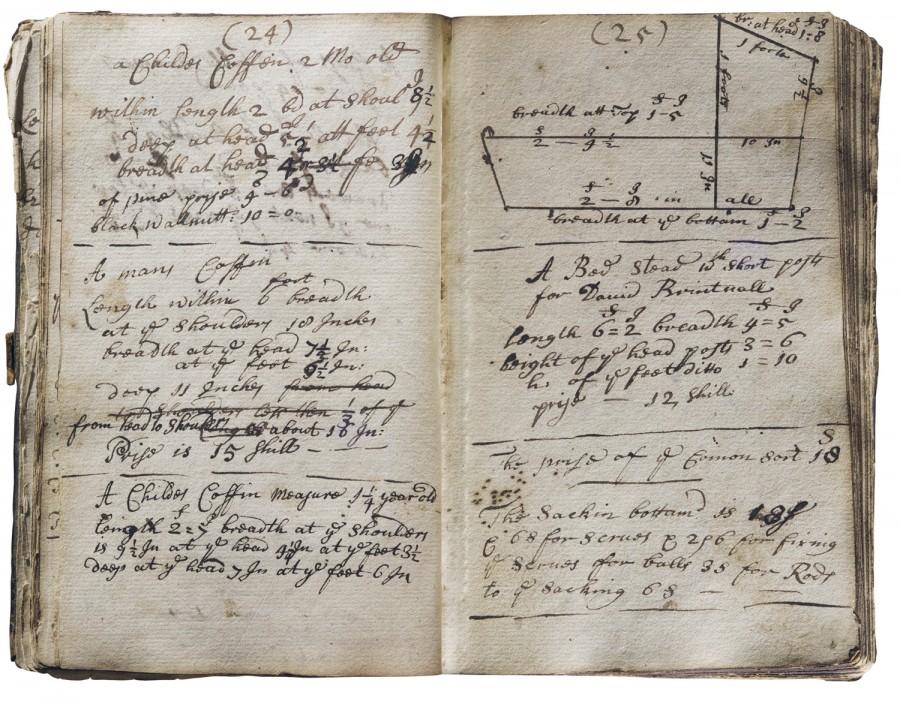 (24)
a Childes Coffen 2 Mo old
within Length 2 bd at Shoul 8 1/2
deep at head 5 att feet 4 1/2
breadth at head 4
of pine prise 4 - 6
black wallnutt: 10 = 0
A mans Coffin
Length within 6 foot breadth
at ye Shoulders 18 Inches
breadth at ye head 7 1/2 In:
at ye feet 9 1/2 In:
deep 11 Inches from head
less then 1/3 of ye
from head to Shoulders about 18 In:
Prise is 15 Shill - - -
A Childes Coffin Measure 1 1/4 year old
Length 2 = 7 breadth at ye Shoulders
is 9 1/2 In at ye head 4 1/2 In at ye feet 3 1/2
deep at ye head 7 In at ye feet 6 In
(25)
br: at head 1 = 8
1 foote
1 foott
9 1/2
breadth att Top 1 - 5
2 - 9 1/2
10 In
11 In
2 - 8 in
all
breadth at ye bottom 1 - 2
A Bed Stead with Short posts
for David Brintnall
Length 6 = 2 breadth 4 = 5
height of ye head posts 3 = 6
h of ye feet ditto 1 = 10
prise - 12 Shill
The prise of ye Comon Sort 18 S
The Sackin bottam is 18
6S for Scrues 2S6 for firnig
ye Scrues for balls 3S for Rods
to ye Sacking 6S